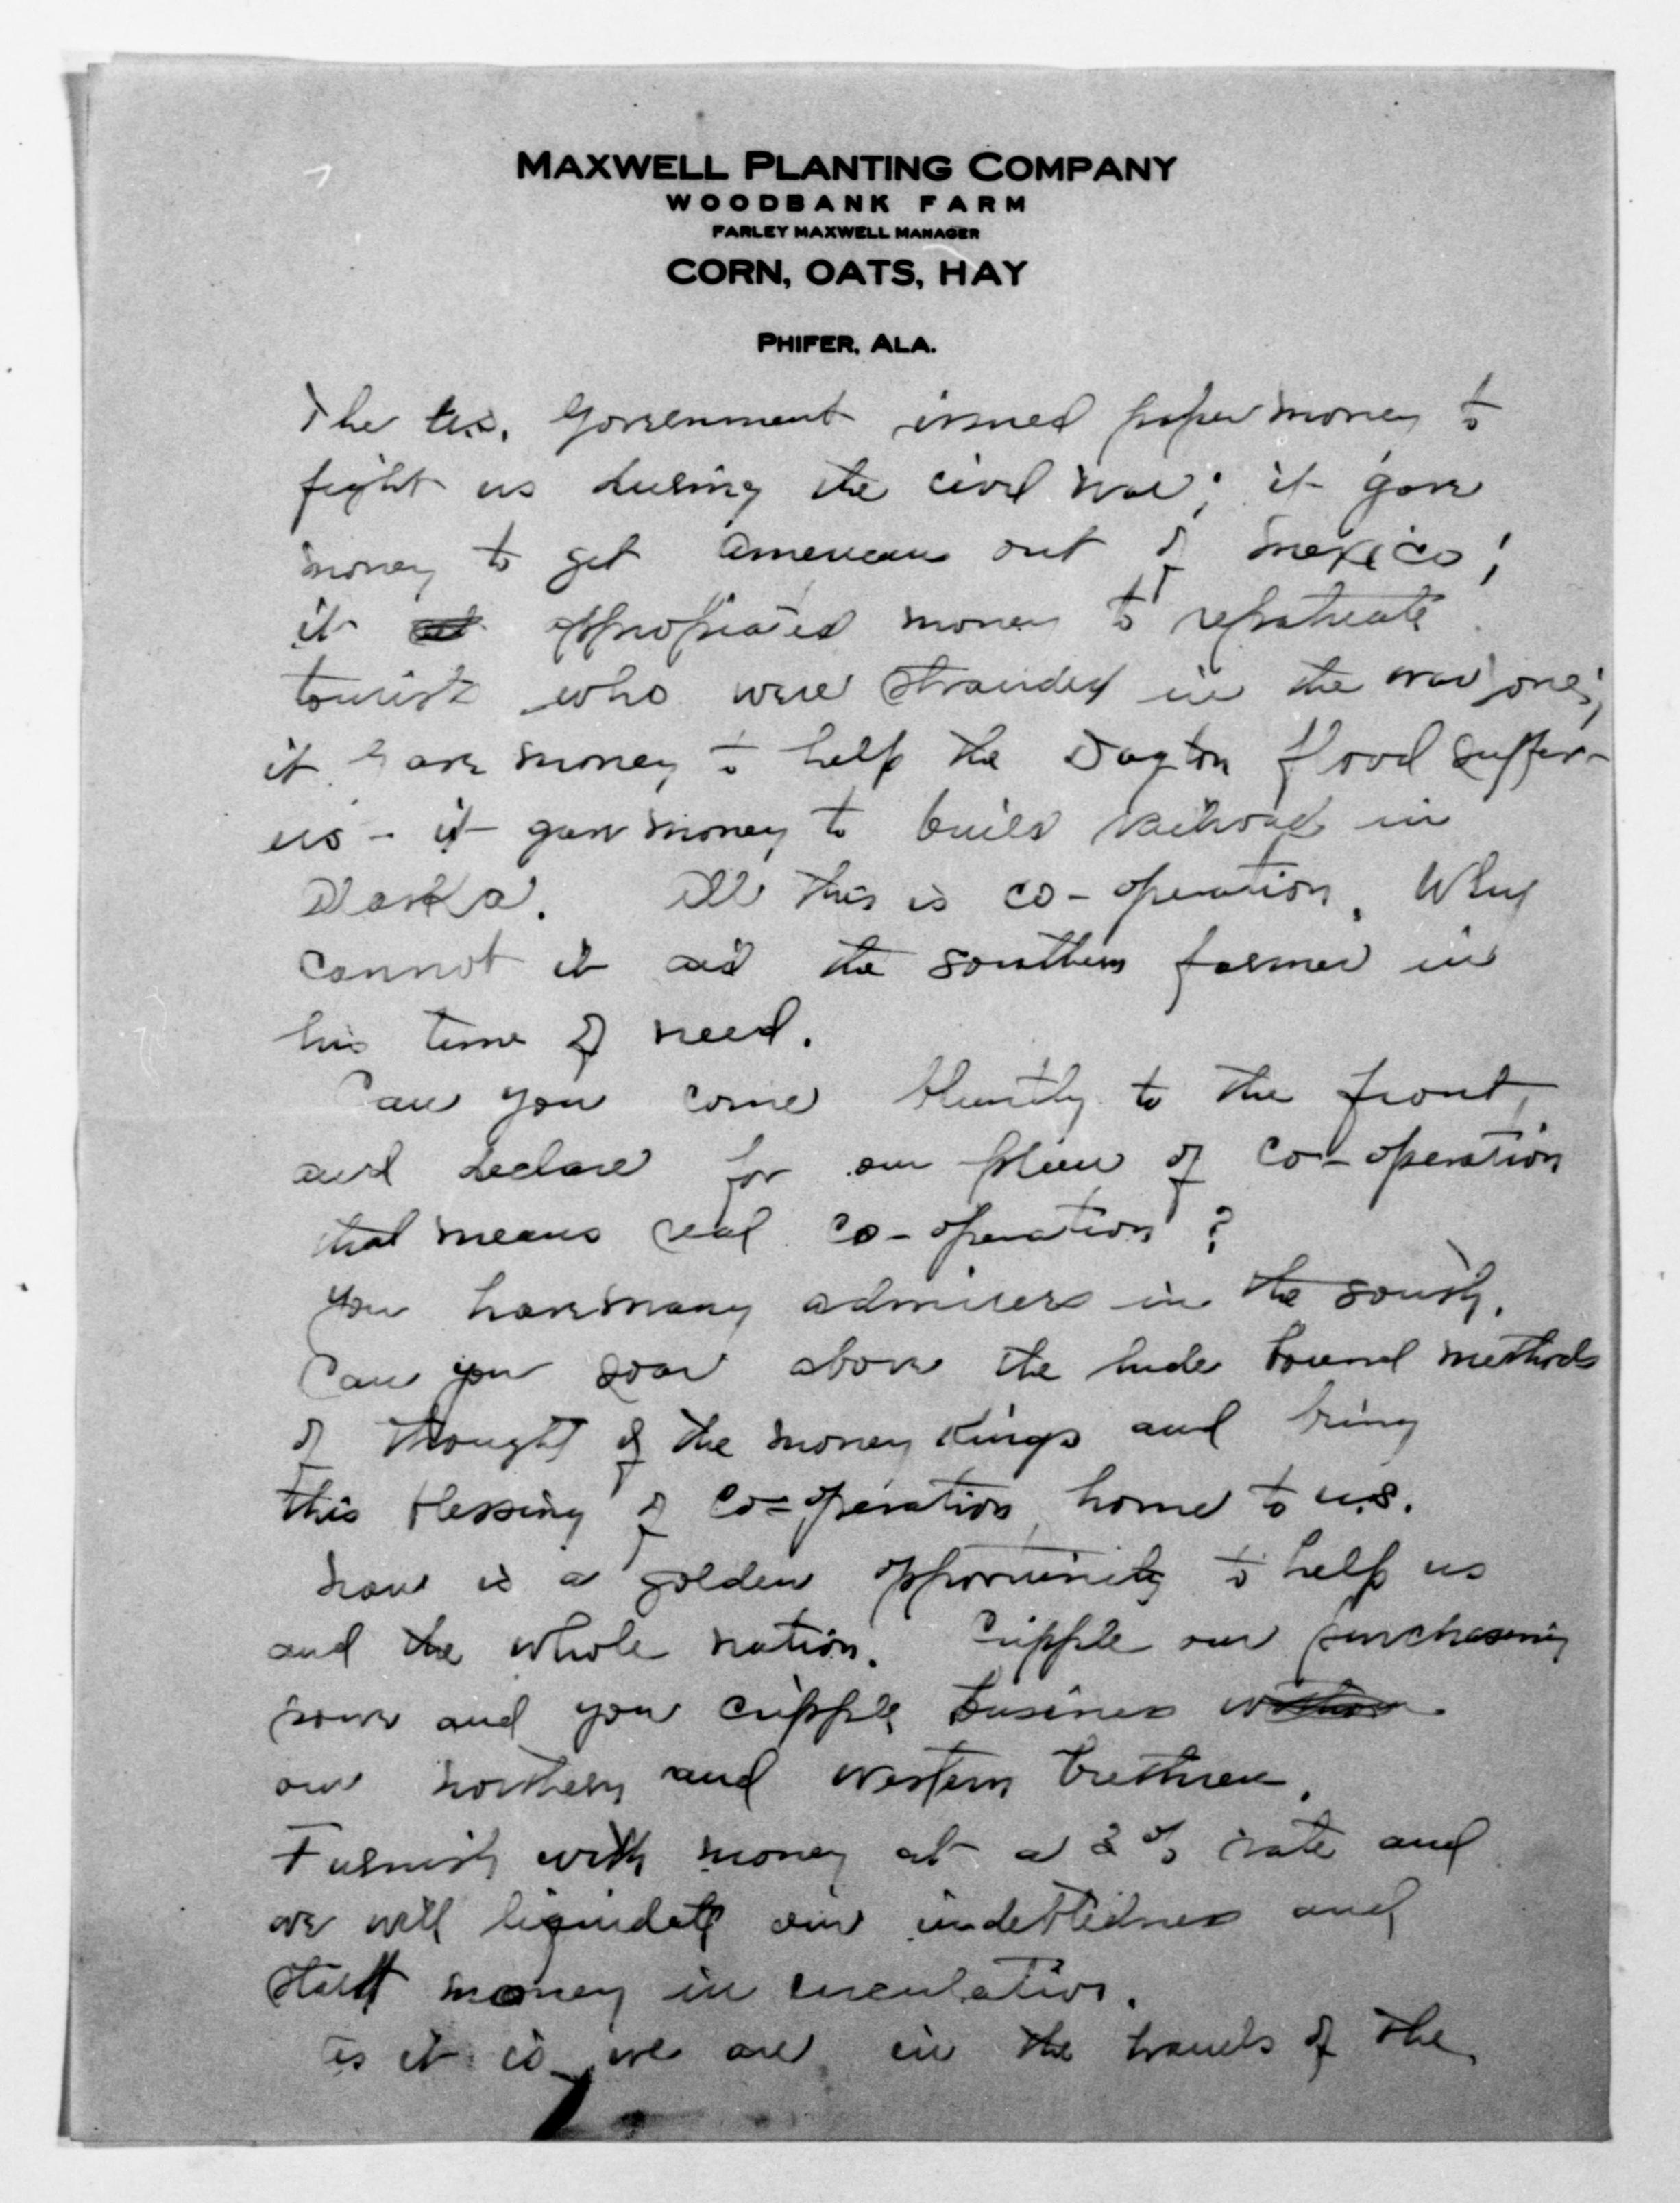 MAXWELL PLANTING COMPANY
WOODBANK FARM
FARLEY MAXWELL MANAGER
CORN, OATS, HAY
PHIFER, ALA.
The U.S. Government issued paper money to
fight us during the civil war; it gave
money to get Americans out of Mexico;
it appropriated money to repatriate
tourists who were stranded in the war zone;
it gave money to help the Dayton flood suffer-
ers - it gave money to build railroad in
Alaska. All this is co-operation. Why
cannot it aid the southern farmer in
his time of need.
Can you come bluntly to the front,
and declare for our plan of co-operation
that means real co-operation?
You have many admirers in the south.
Can you soar above the hide bound methods
of thought of the money kings and bring
this blessing of co-operation home to us.
Now is a golden opportunity to help us
and the whole nation. Cripple our purchasing
power and you cripple business
our northern and western brethren.
Furnish with money at a 3% rate and
we will liquidate our indebtedness and
start money in circulation.
As it is we are in the hands of the